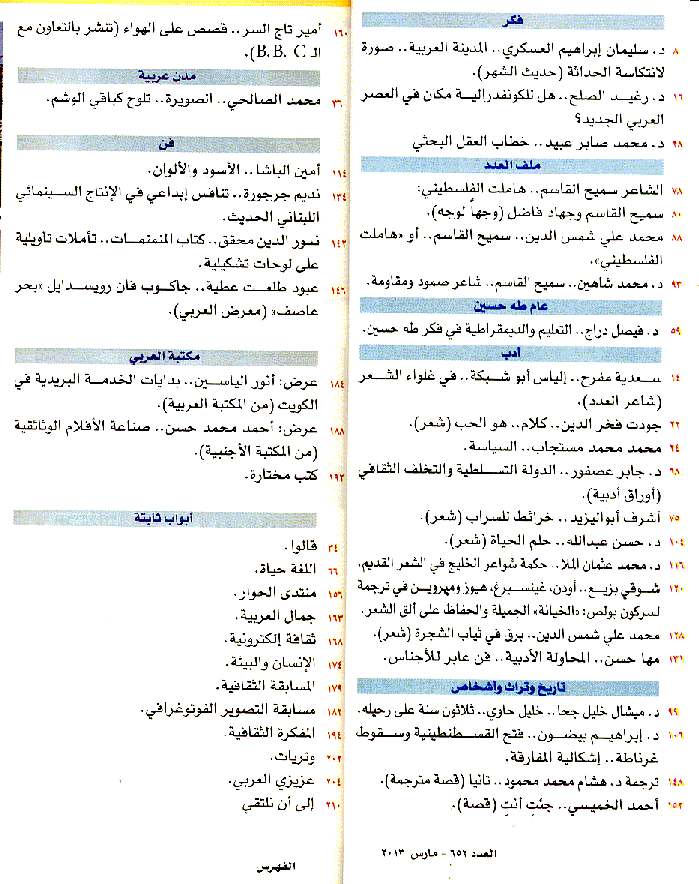 فكر
٨ د. سليمان إبراهيم العسكري.. المدينة العربية.. صورة
لانتكاسة الحداثة (حديث الشهر).
١٦ د. رغيد الصلح.. هل للكونفدرالية مكان في العصر
العربي الجديد؟
٢٨ د. محمد صابر عبيد.. خطاب العقل البحثي
ملف العدد
٧٨ الشاعر سميح القاسم.. هاملت الفلسطيني:
٨٠ سميح القاسم وجهاد فاضل (وجهاً لوجه).
٨٨ محمد علي شمس الدين.. سميح القاسم.. أو «هاملت
الفلسطيني».
٩٣ د. محمد شاهين.. سميح القاسم.. شاعر صمود ومقاومة.
عام طه حسين
٥٩ د. فيصل دراج.. التعليم والديمقراطية في فكر طه حسين.
أدب
١٤ سعدية مفرح.. إلياس أبو شبكة.. في غلواء الشعر
(شاعر العدد).
٢٢ جودت فخر الدين.. كلام.. هو الحب (شعر).
٢٤ محمد محمد مستجاب.. السياسة.
٦٨ د. جابر عصفور.. الدولة التسلطية والتخلف الثقافي
(أوراق أدبية).
٧٥ أشرف أبواليزيد.. خرائط للسراب (شعر).
١٠٤ د. حسن عبدالله.. حلم الحياة (شعر).
١١٦ د. محمد عثمان الملا.. حكمة شواعر الخليج في الشعر القديم.
١٢٠ شوقي بزيع.. أودن، غينسبرغ، هيوز وميروين في ترجمة
لسركون بولص: «الخيانة» الجميلة والحفاظ على ألق الشعر.
١٢٨ محمد علي شمس الدين.. برق في ثياب الشجرة (شعر).
١٣١ مها حسن.. المحاولة الأدبية.. فن عابر للأجناس.
تاريخ وتراث وأشخاص
٩٩ د. ميشال خليل جحا.. خليل حاوي.. ثلاثون سنة على رحيله.
١٠٦ د. إبراهيم بيضون.. فتح القسطنطينية وسقوط
غرناطة.. إشكالية المفارقة.
١٤٨ ترجمة د. هشام محمد محمود.. تانيا (قصة مترجمة).
١٥٢ أحمد الخميسي.. جئتِ أنتِ (قصة).
العدد ٦٥٢ - مارس ٢٠١٣
١٦٠ أمير تاج السر.. قصص على الهواء (تنشر بالتعاون مع
الـ B.B. C).
مدن عربية
٣٦ محمد الصالحي.. الصويرة.. تلوح كباقي الوشم.
فن
١١٤ أمين الباشا.. الأسود والألوان.
١٣٤ نديم جرجورة.. تنافس إبداعي في الإنتاج السينمائي
اللبناني الحديث.
١٤٢ نسور الدين محقق.. كتاب المنمنمات.. تأملات تأويلية
على لوحات تشكيلية.
١٤٦ عبود طلعت عطية.. جاكوب فان رويسدايل «بحر
عاصف» (معرض العربي).
مكتبة العربي
١٨٤ عرض: أنور الياسين.. بدايات الخدمة البريدية في
الكويت (من المكتبة العربية).
١٨٨ عرض: أحمد محمد حسن.. صناعة الأفلام الوثائقية
(من المكتبة الأجنبية).
١٩٢ كتب مختارة.
أبواب ثابتة
٣٤ قالوا.
٦٦ اللغة حياة.
١٥٦ منتدى الحوار.
١٦٣ جمال العربية.
١٦٨ ثقافة إلكترونية.
١٧٤ الإنسان والبيئة.
١٧٩ المسابقة الثقافية.
١٨٢ مسابقة التصوير الفوتوغرافي.
١٩٤ المفكرة الثقافية.
٢٠٢ وتريات.
٢٠٤ عزيزي العربي.
٢١٠ إلى أن نلتقي
الفهرس